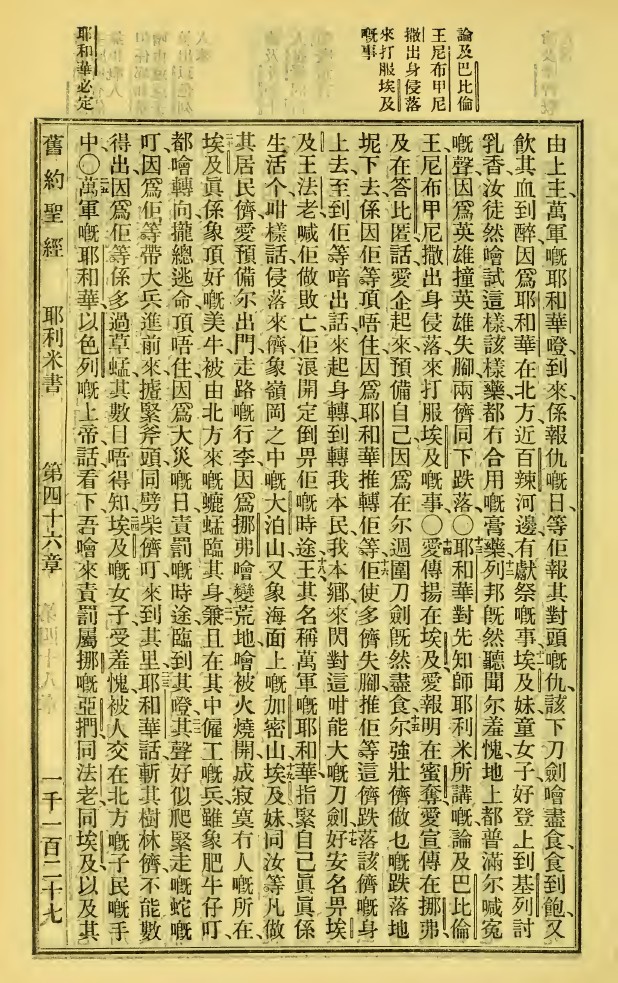 論及巴比倫
王尼布甲尼
撒出身侵落
來打服埃及
嘅事
耶和華必定
由上主萬軍嘅耶和華噔到來、係報仇嘅日、等佢報其對頭嘅仇、該下刀劍噲盡食、食到飽、又
飲其血到醉、因爲耶和華在北方近百辣河邊、有獻祭嘅事、十一埃及妹童女子、好登上到基列討
乳香、汝徒然噲試這樣該樣藥、都冇合用嘅膏藥、十二列邦旣然聽聞尔羞愧、地上都普滿尔喊寃
嘅聲、因爲英雄撞英雄失腳、兩儕同下跌落、〇十三耶和華對先知師耶利米所講嘅、論及巴比倫
王尼布甲尼撒出身侵落來打服埃及嘅事、〇十四愛傳揚在埃及、愛報明在蜜奪、愛宣傳在挪弗
及在答比匿、話、愛企起來預備自己、因爲在尔週圍刀劍旣然盡食、十五尔強壯儕做乜嘅跌落地
坭下去、係因佢等頂唔住、因爲耶和華推轉佢等、十六佢使多儕失腳、推佢等這儕跌落該儕嘅身
上去、至到佢等喑出話來、起身、轉到轉我本民我本鄉來、閃對這咁能大嘅刀劍、十七好安名畀埃
及王法老喊佢做敗亡、佢㴰開定倒畀佢嘅時途、十八王其名稱萬軍嘅耶和華、指緊自己眞眞係
生活个、咁樣話、侵落來儕、象嶺岡之中嘅大泊山、又象海面上嘅加密山、十九埃及妹同汝等凡做
其居民儕、愛預備尔出門走路嘅行李、因爲挪弗噲變荒地、噲被火燒開、成寂寞冇人嘅所在、
二十埃及眞係象頂好嘅美牛、被由北方來嘅螕蜢臨其身、兼且在其中僱工嘅兵、雖象肥牛仔、叮
都噲轉向攏總逃命、頂唔住、因爲大災嘅日、責罰嘅時途臨到其噔、其聲好似爬緊走嘅蛇嘅
叮、因爲佢等帶大兵進前來、㨿緊斧頭、同劈柴儕叮、來到其里、耶和華話、斬其樹林、儕不能數
得出、因爲佢等係多過草蜢、其數目唔得知、二四埃及嘅女子受羞愧、被人交在北方嘅子民嘅手
中、〇二五萬軍嘅耶和華、以色列嘅上帝話、看下、吾噲來責罰屬挪嘅亞捫、同法老、同埃及、以及其
舊約聖經 耶利米書 第四十六章 一千一百二十七